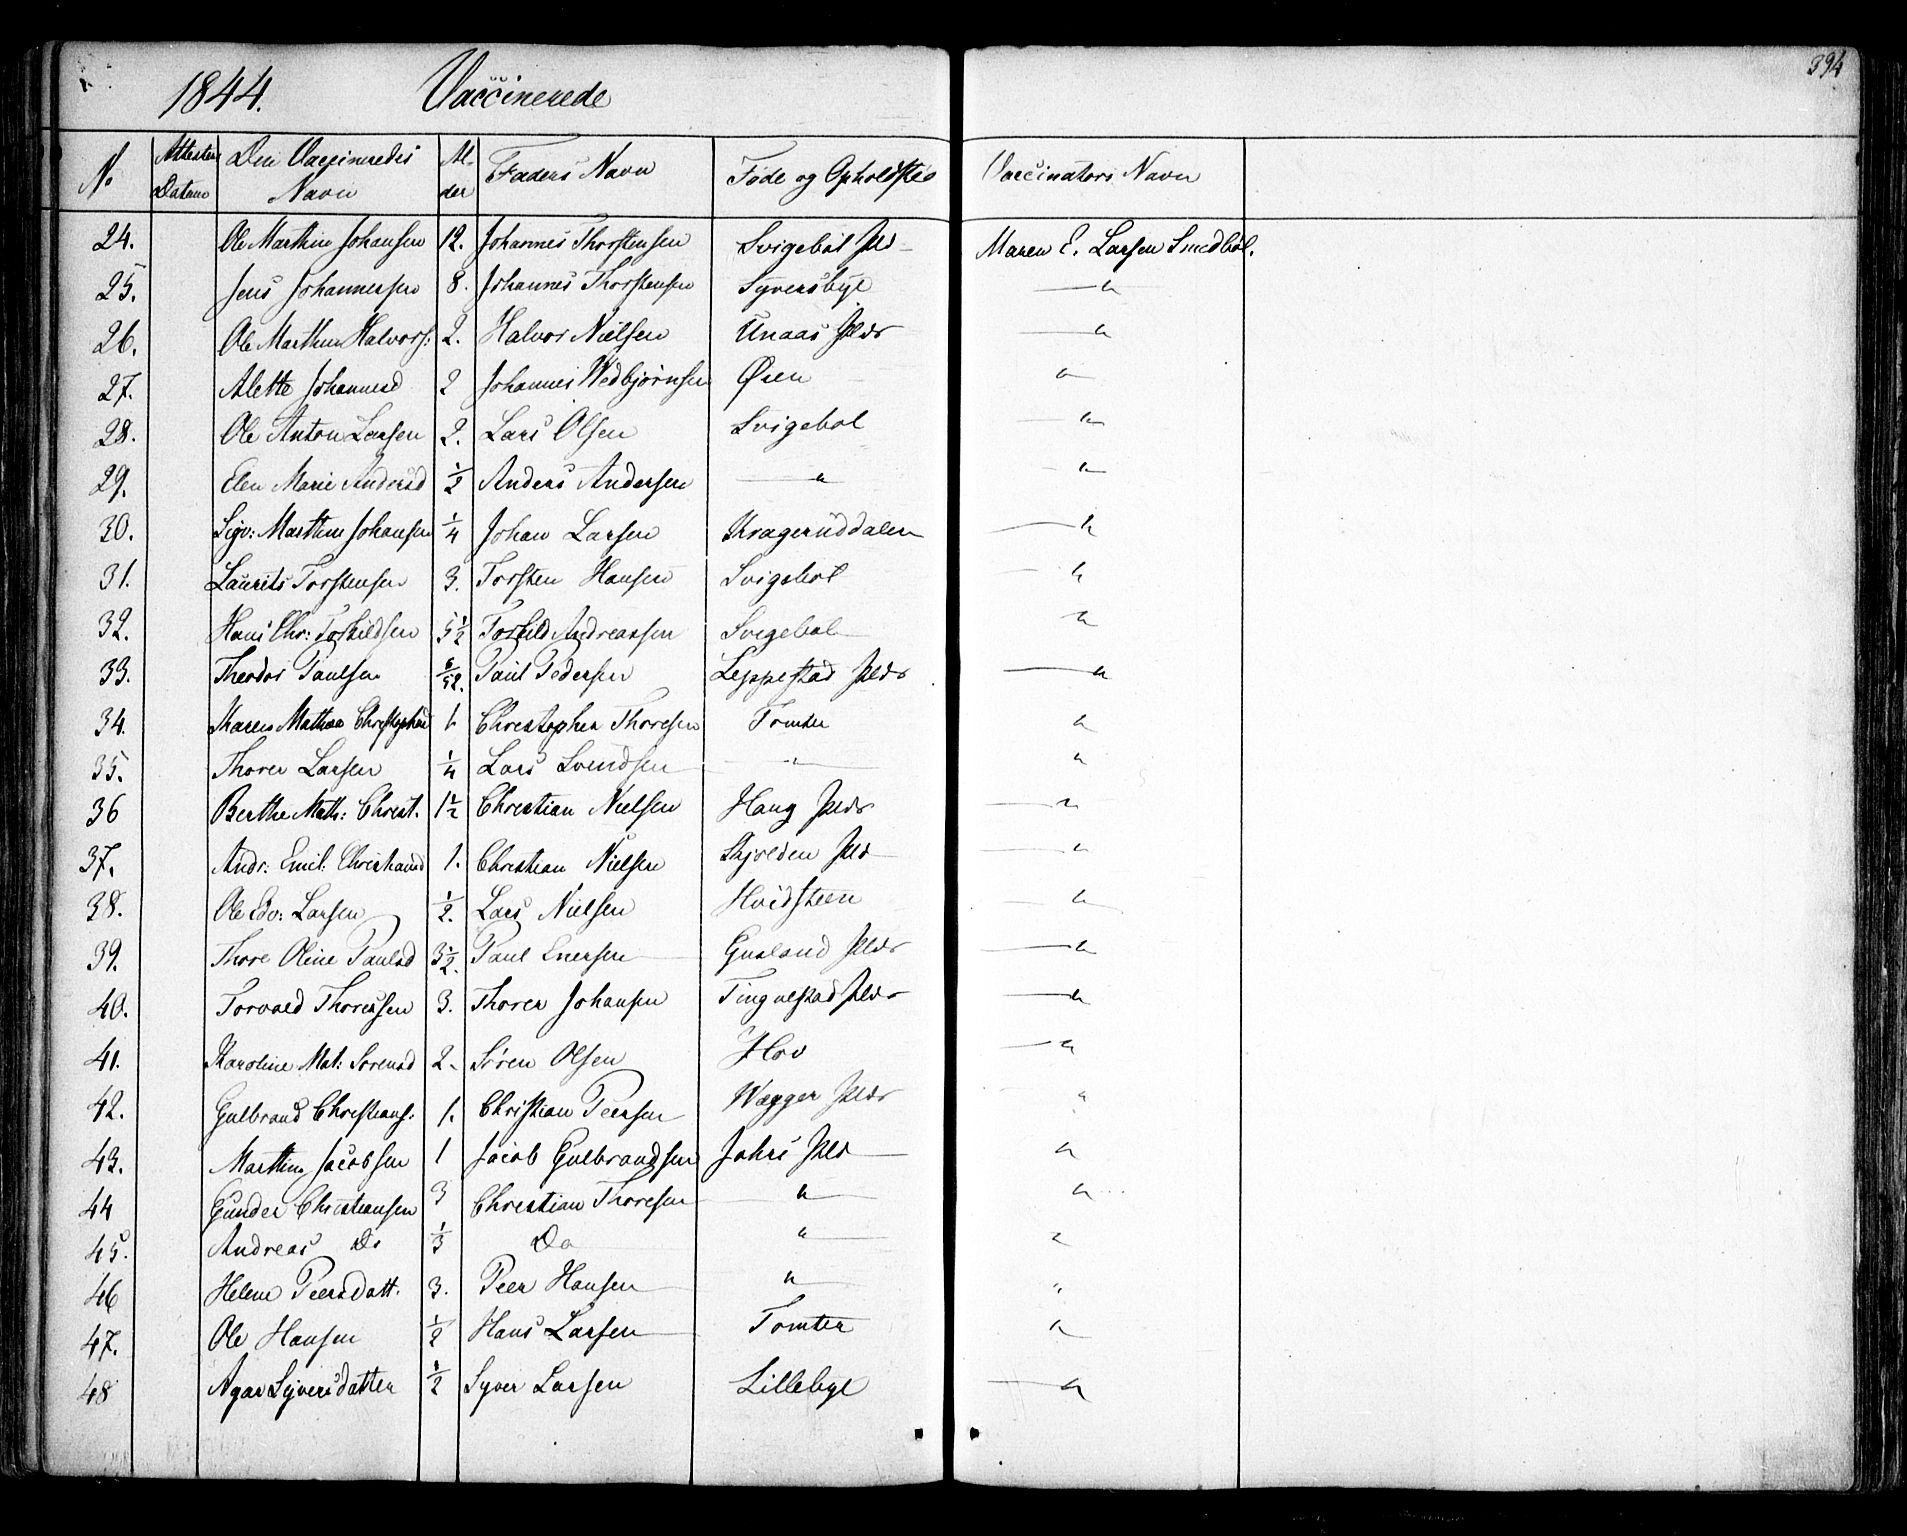 394
1844. Vaccinerede
No Attestens Datum Den Vaccineredes Navn Alder Faders Navn Føde og Opholdsted Vaccinators Navn
24. Ole Marthin Johansen 12. Johannes Thorstensen Svigebøl Maren E. Larsen Smedbøl.
25. Jens Johannesen 8. Johannes Thorstensen Syversbye — " —
26. Ole Marthin Halvors: 2. Halvor Nielsen Unaas — "
27. Alette Johannesd 2 Johannes Wedbjørnsen Øien — "
28. Ole Anton Larsen 2. Lars Olsen Svigebøl — " —
29. Elen Marie Andersd 1/2 Anders Andersen — " — "
30. Sigv: Marthin Johansen 1/4 Johan Larsen Krageruddalen — "
31. Laurits Torstensen 3. Torsten Hansen Svigebøl — "
32. Hans Chr: Torkildsen 5 1/2 Torkild Andreassen Svigebøl "
33. Theodor Paulsen 6/52. Paul Pedersen Leppestad — "
34. Maren Mathea Christophd 1 Christopher Thoresen Tomter "
35. Thorer Larsen 1/4 Lars Svendsen — " — "
36 Berthe Math: Christ. 1 1/2 Christian Nielsen Haug — "
37. Andr: Emil: Christiansd 1. Christian Nielsen Skjolden — "
38. Ole Edv: Larsen 1/2. Lars Nielsen Hvidsteen "
39. Thore Oline Paulsd 3 1/2. Paul Enersen Gusland — "
40. Torvald Thoresen 3. Thorer Johansen Tingulstad — "
41. Karoline Mat: Sørensd 2. Søren Olsen Hov — "
42. Gulbrand Christians: 1. Christian Peersen Wegger "
43. Marthin Jacobsen 1 Jacob Gulbrandsen Jahrs "
44 Gunder Christiansen 3 Christian Thoresen — " — "
45. Andreas Do 1/3 Do " — "
46 Helene Peersdatt. 3. Peer Hansen " — "
47. Ole Hansen 1/2 Hans Larsen Tomter "
48 Agar Syversdatter 1/2 Syver Larsen Lillebye — "